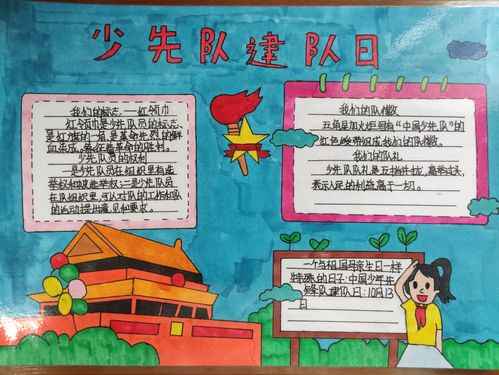 少先队建队日
我们的标志——红领巾
红领巾是少先队员的标志,
是红旗的一角,是革命先烈的鲜
血染成,象征着革命的胜利。
少先队员的权利
一是少先队员在组织里有选
举权和被选举权;二是少先队员
在队组织里,可以对队的工作和队
的活动提出意见和要求。
我们的队徽
五角星加火炬和有“中国少先队”的
红色绶带组成我们的队徽。
我们的队礼
少先队队礼是五指并拢,高举过头,
表示人民的利益高于一切。
一个与祖国母亲生日一样
特殊的日子:中国少年先
锋队建队日:10月13
日